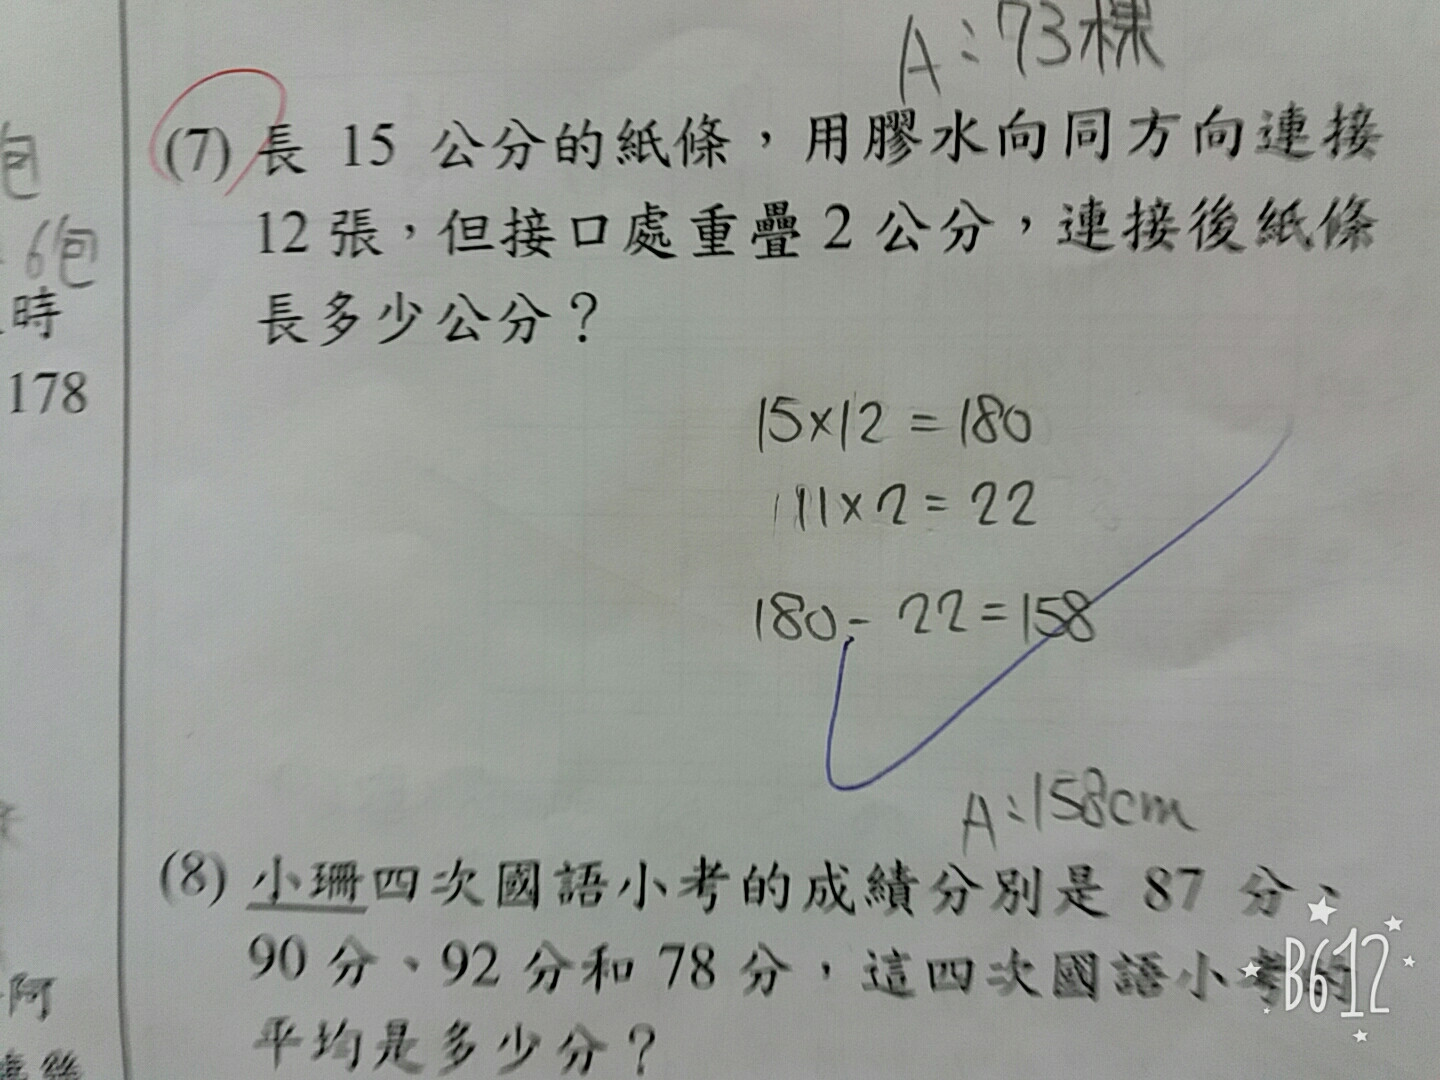 A:73棵
(7) 長 15 公分的紙條,用膠水向同方向連接
12 張,但接口處重疊 2 公分,連接後紙條
長多少公分?
15×12=180
11×2=22
180-22=158
A:158cm
(8) 小珊四次國語小考的成績分別是 87 分、
90 分、92 分和 78 分,這四次國語小考的
平均是多少分?
包
6包
時
178
阿
B612